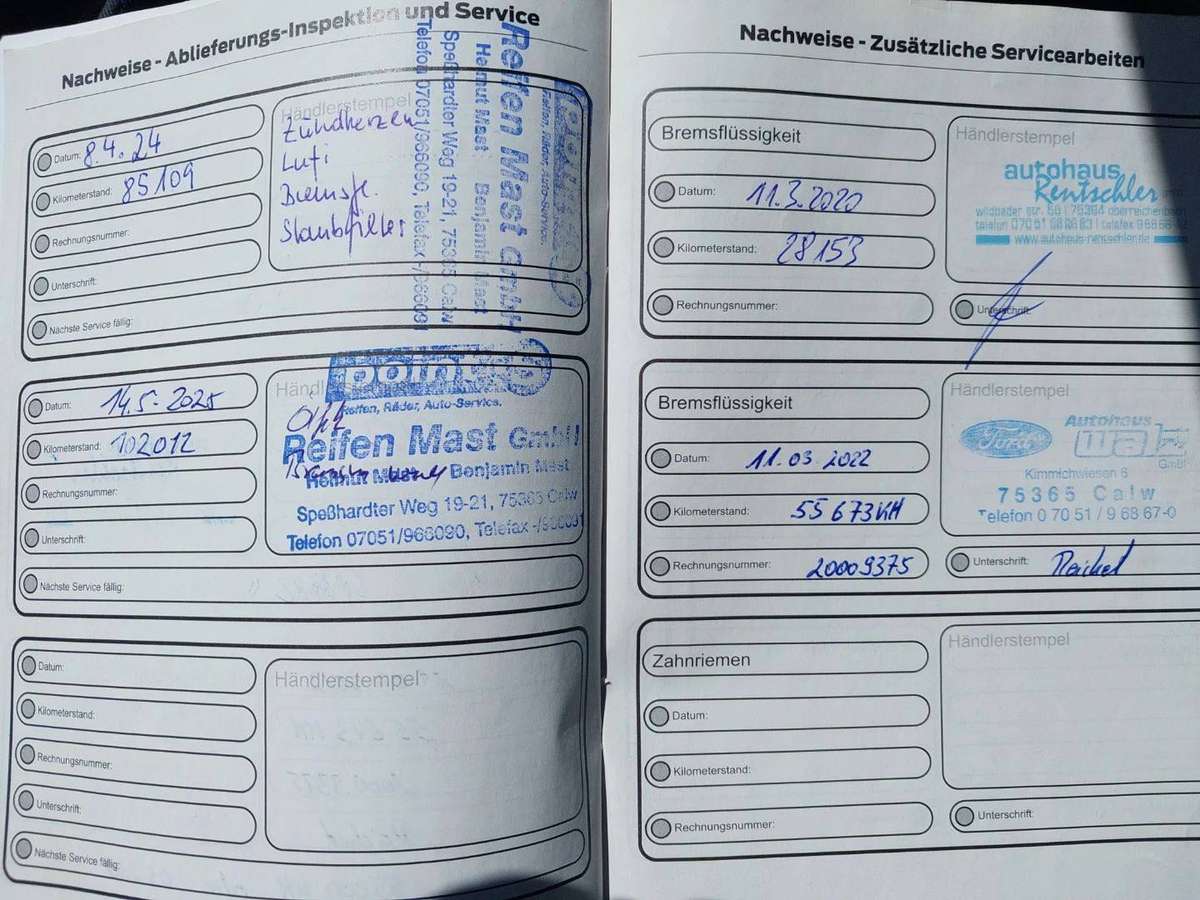 Nachweise - Ablieferungs-Inspektion und Service
Datum: 8.4.24
Kilometerstand: 85109
Rechnungsnummer:
Unterschrift:
Nächste Service fällig:
Händlerstempel
Zündkerzen
Luft
Bremsfl.
Staubfilter
Reifen, Räder, Auto-Service.
Reifen Mast GmbH
Helmut Mast Benjamin Mast
Speßhardter Weg 19-21, 75365 Calw
Telefon 07051/966090, Telefax -/966091
Datum: 14.5.2025
Kilometerstand: 102012
Rechnungsnummer:
Unterschrift:
Nächste Service fällig:
Händlerstempel
point
Reifen, Räder, Auto-Service.
Reifen Mast GmbH
Helmut Mast Benjamin Mast
Speßhardter Weg 19-21, 75365 Calw
Telefon 07051/966090, Telefax -/966091
Datum:
Kilometerstand:
Rechnungsnummer:
Unterschrift:
Nächste Service fällig:
Händlerstempel
Nachweise - Zusätzliche Servicearbeiten
Bremsflüssigkeit
Datum: 11.3.2020
Kilometerstand: 28153
Rechnungsnummer:
Händlerstempel
autohaus
Rentschler
wildbader str. 56 | 75394 oberreichenbach
www.autohaus-rentschler.de
Unterschrift:
Bremsflüssigkeit
Datum: 11.03.2022
Kilometerstand: 55 673 KM
Rechnungsnummer: 20009375
Händlerstempel
Ford
Autohaus
GmbH
Kimmichwiesen 6
75365 Calw
Telefon 0 70 51 / 9 68 67-0
Unterschrift:
Zahnriemen
Datum:
Kilometerstand:
Rechnungsnummer:
Händlerstempel
Unterschrift: